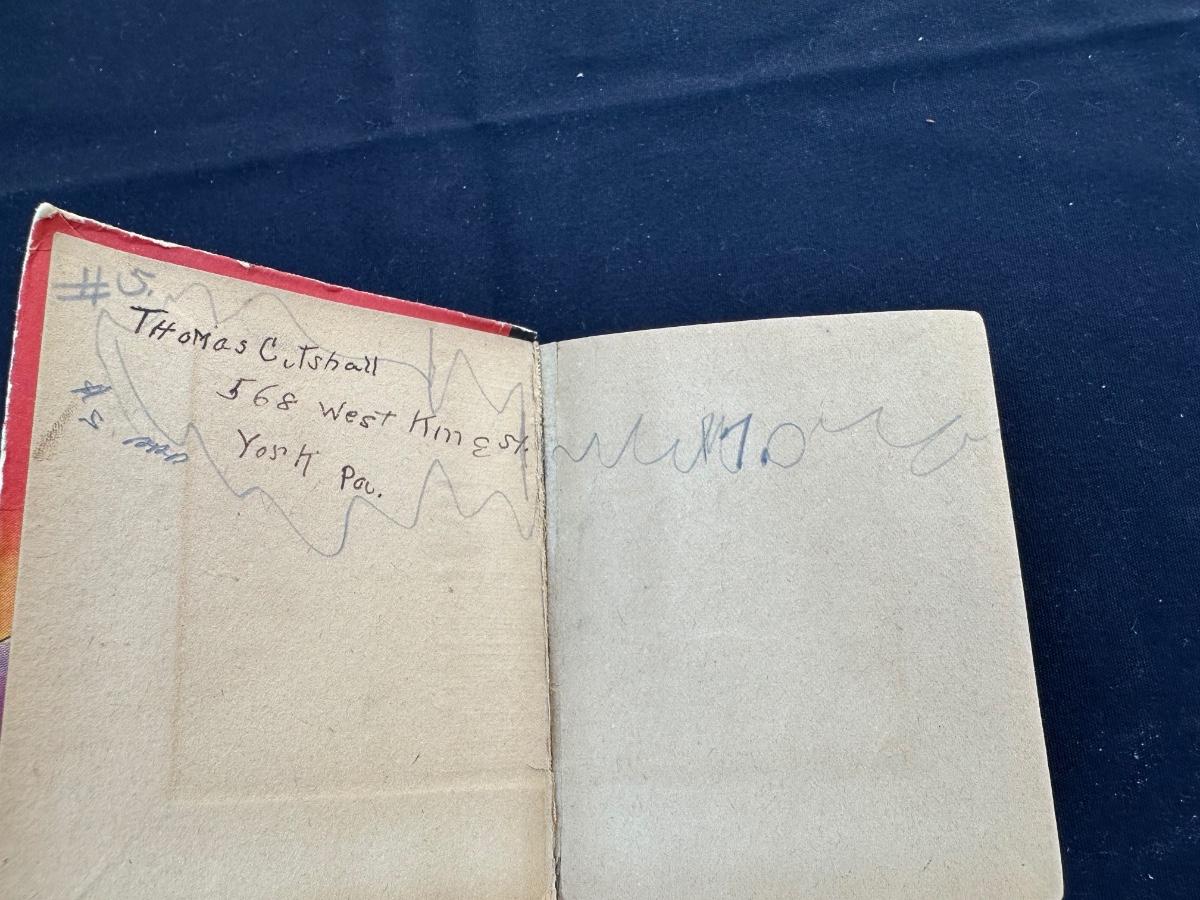 #5.
THOMAS Cutshall
568 West King St.
York Pa.
#5